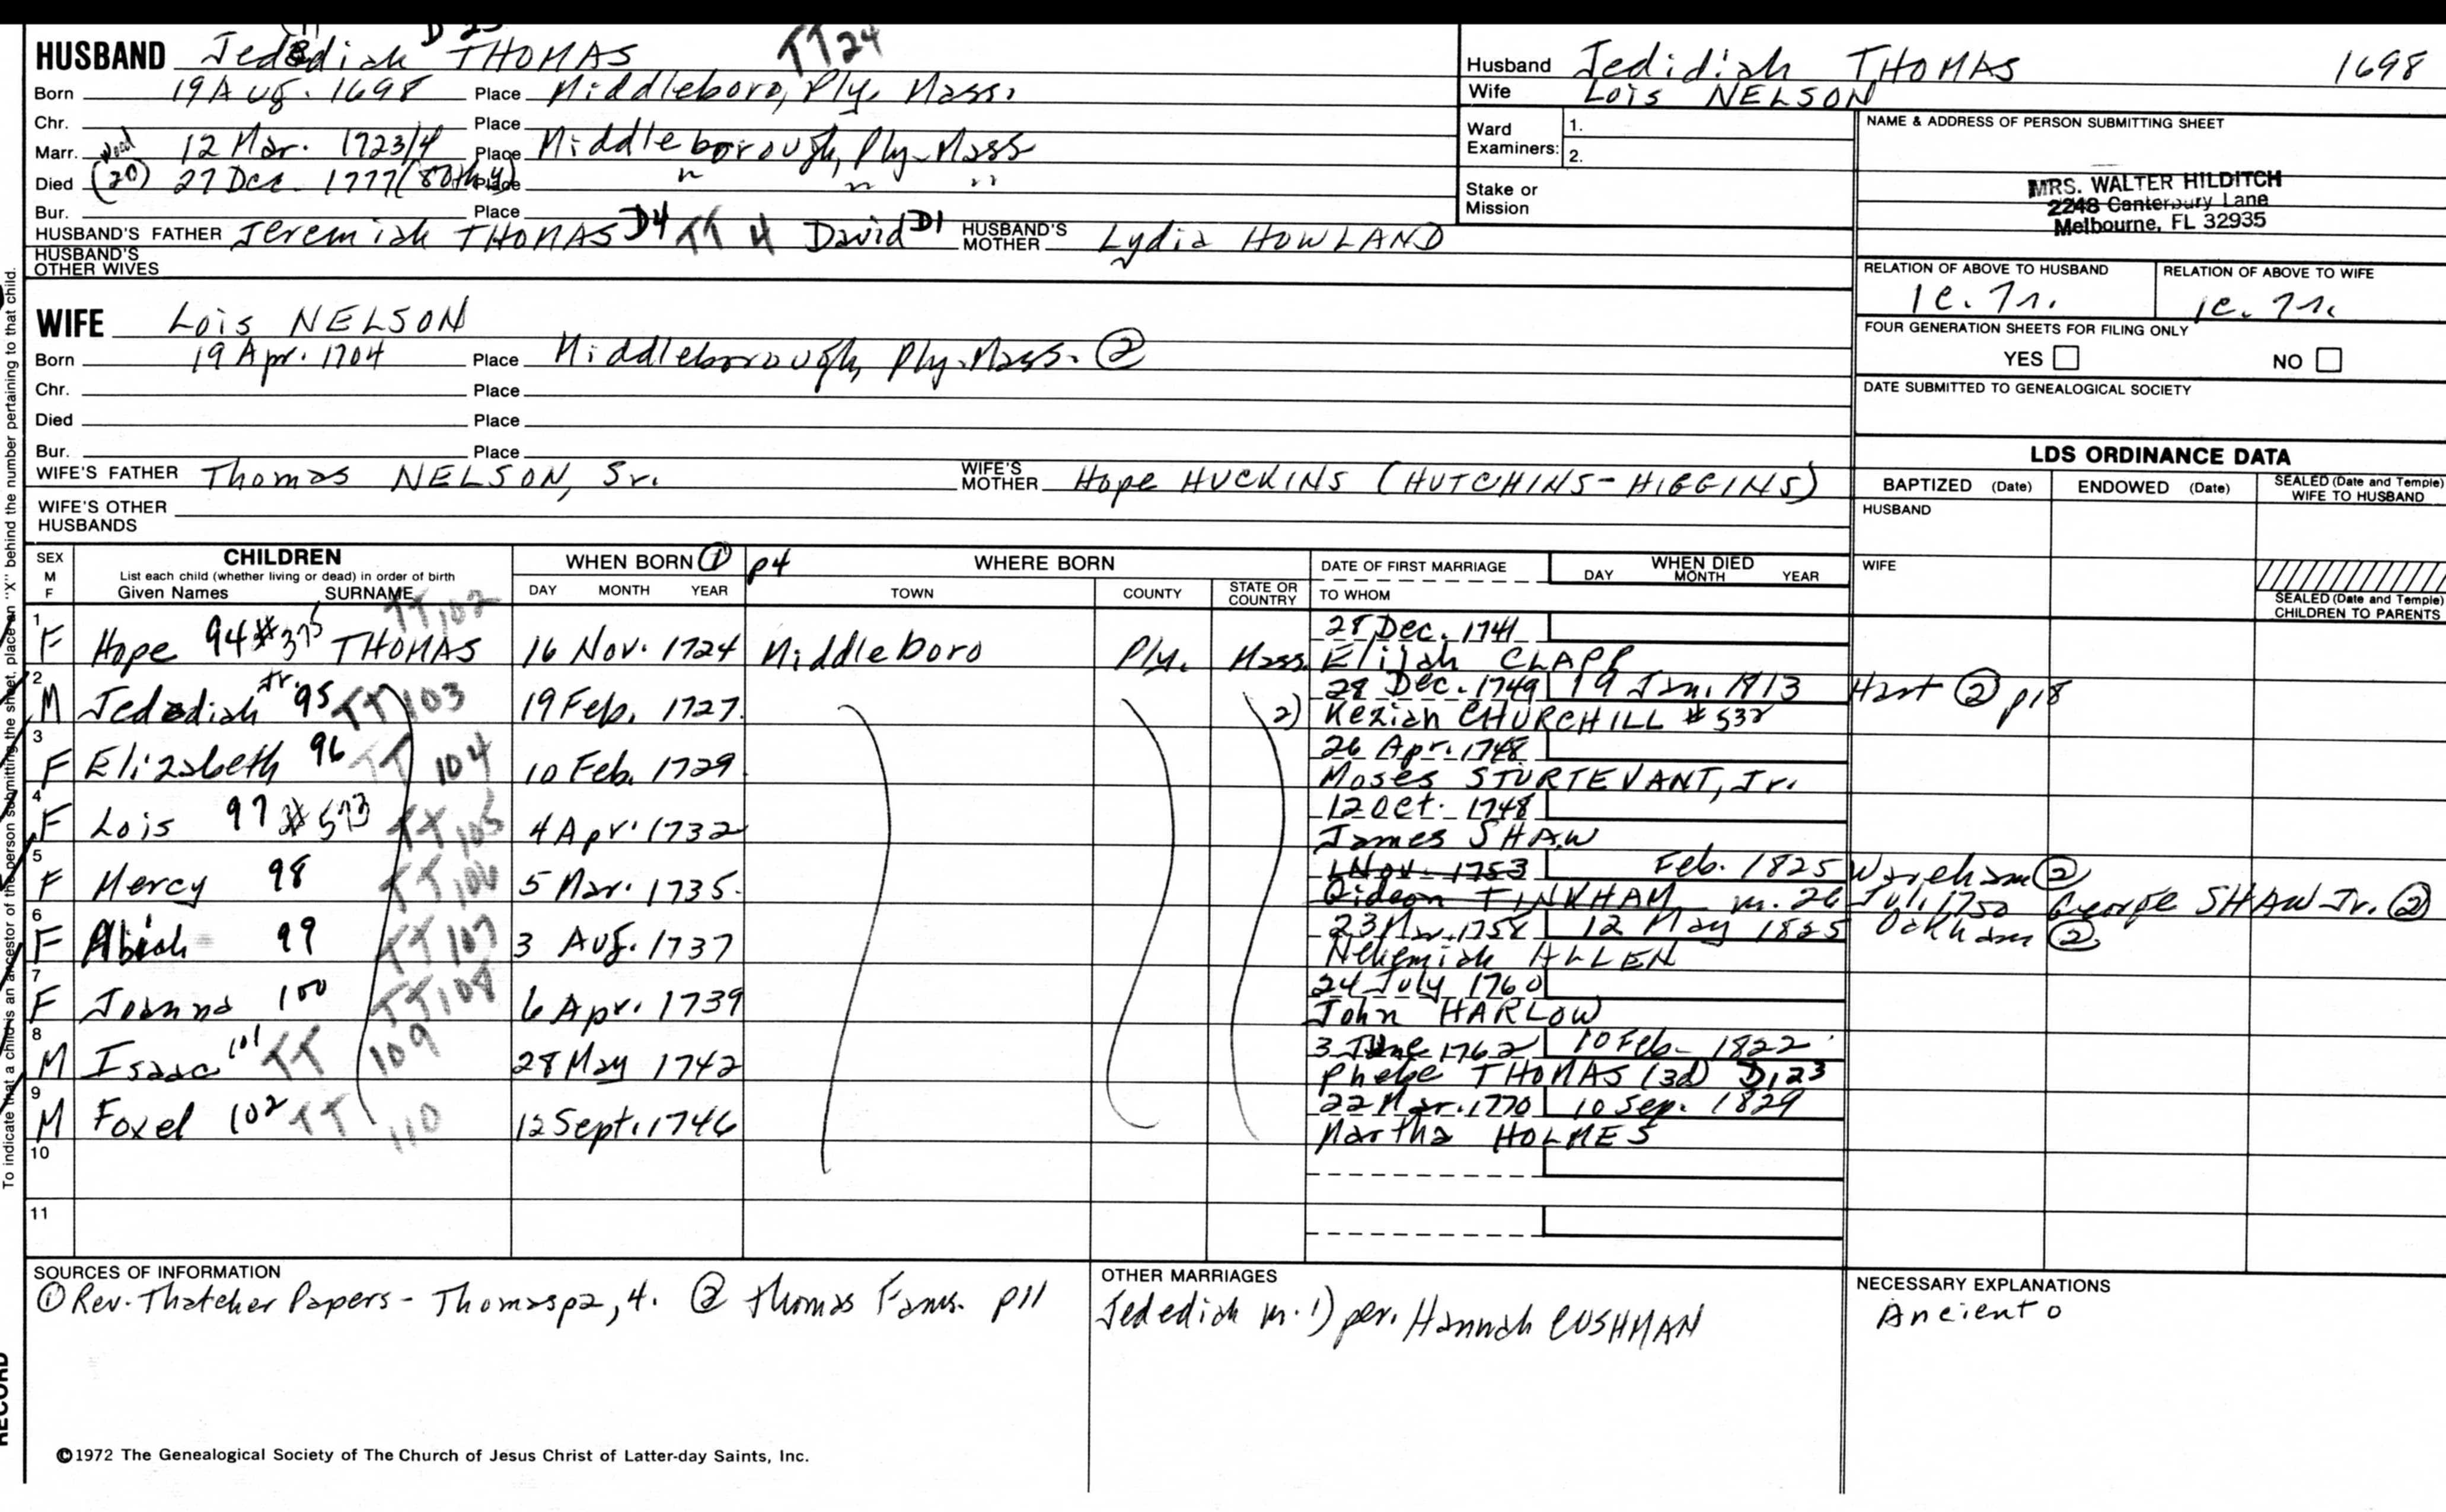 HUSBAND Jedediah THOMAS TT24
Born 19 Aug. 1698 Place Middleboro, Ply. Mass.
Chr. Place
Marr. 12 Mar. 1723/4 Place Middleborough, Ply-Mass
Died (20) 27 Dec. 1777 (80th y) Place " " "
Bur. Place
HUSBAND'S FATHER Jeremiah THOMAS D4 TT 4 David D1 HUSBAND'S MOTHER Lydia HOWLAND
HUSBAND'S OTHER WIVES
Husband Jedidiah THOMAS 1698
Wife Lois NELSON
Ward Examiners: 1.
2.
Stake or Mission
NAME & ADDRESS OF PERSON SUBMITTING SHEET
MRS. WALTER HILDITCH
2248 Canterbury Lane
Melbourne, FL 32935
RELATION OF ABOVE TO HUSBAND RELATION OF ABOVE TO WIFE
1c. 7r. 1c. 7r.
FOUR GENERATION SHEETS FOR FILING ONLY
YES NO
DATE SUBMITTED TO GENEALOGICAL SOCIETY
WIFE Lois NELSON
Born 19 Apr. 1704 Place Middleborough, Ply-Mass. ②
Chr. Place
Died Place
Bur. Place
WIFE'S FATHER Thomas NELSON, Sr. WIFE'S MOTHER Hope HUCKINS (HUTCHINS-HIGGINS)
WIFE'S OTHER HUSBANDS
LDS ORDINANCE DATA
BAPTIZED (Date) ENDOWED (Date) SEALED (Date and Temple) WIFE TO HUSBAND
HUSBAND
WIFE
SEALED (Date and Temple) CHILDREN TO PARENTS
SEX M F CHILDREN List each child (whether living or dead) in order of birth Given Names SURNAME WHEN BORN ① p4 DAY MONTH YEAR WHERE BORN TOWN COUNTY STATE OR COUNTRY DATE OF FIRST MARRIAGE TO WHOM WHEN DIED DAY MONTH YEAR
1 F Hope 94 #375 THOMAS TT102 16 Nov. 1724 Middleboro Ply. Mass. 28 Dec. 1741
Elijah CLAPP
2 M Jedediah Jr. 95 TT103 19 Feb. 1727 28 Dec. 1749 19 Jan. 1813 Hart ② p18
2) Keziah CHURCHILL #532
3 F Elizabeth 96 TT 104 10 Feb. 1729 26 Apr. 1748
Moses STURTEVANT, Jr.
4 F Lois 97 #573 TT105 4 Apr. 1732 12 Oct. 1748
James SHAW
5 F Mercy 98 TT106 5 Mar. 1735 1 Nov. 1753 Feb. 1825 Wareham ②
Gideon TINKHAM m. 26 Jul. 1750 George SHAW Jr. ②
6 F Abiah 99 TT107 3 Aug. 1737 23 Mar. 1758 12 May 1825 Oakham ②
Nehemiah ALLEN
7 F Joanna 100 TT108 6 Apr. 1739 24 July 1760
John HARLOW
8 M Isaac 101 TT 109 28 May 1742 3 June 1762 10 Feb. 1822
Phebe THOMAS (3d) D123
9 M Foxel 102 TT 110 12 Sept. 1746 22 Mar. 1770 10 Sep. 1829
Martha HOLMES
10
11
SOURCES OF INFORMATION
① Rev. Thatcher Papers - Thomas p2, 4. ② Thomas Fams. p11
OTHER MARRIAGES
Jedediah m. 1) per. Hannah CUSHMAN
NECESSARY EXPLANATIONS
Anciento
©1972 The Genealogical Society of The Church of Jesus Christ of Latter-day Saints, Inc.
To indicate that a child is an ancestor of the person submitting the sheet, place an "X" behind the number pertaining to that child.
RECORD